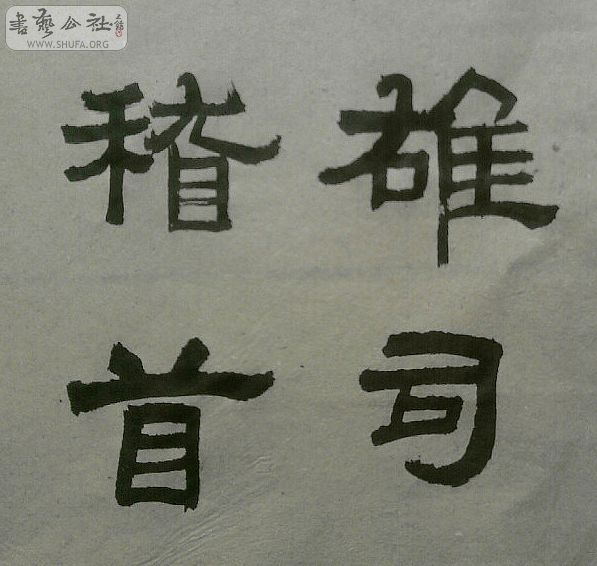 書藝公社
WWW.SHUFA.ORG
雄司
稽首